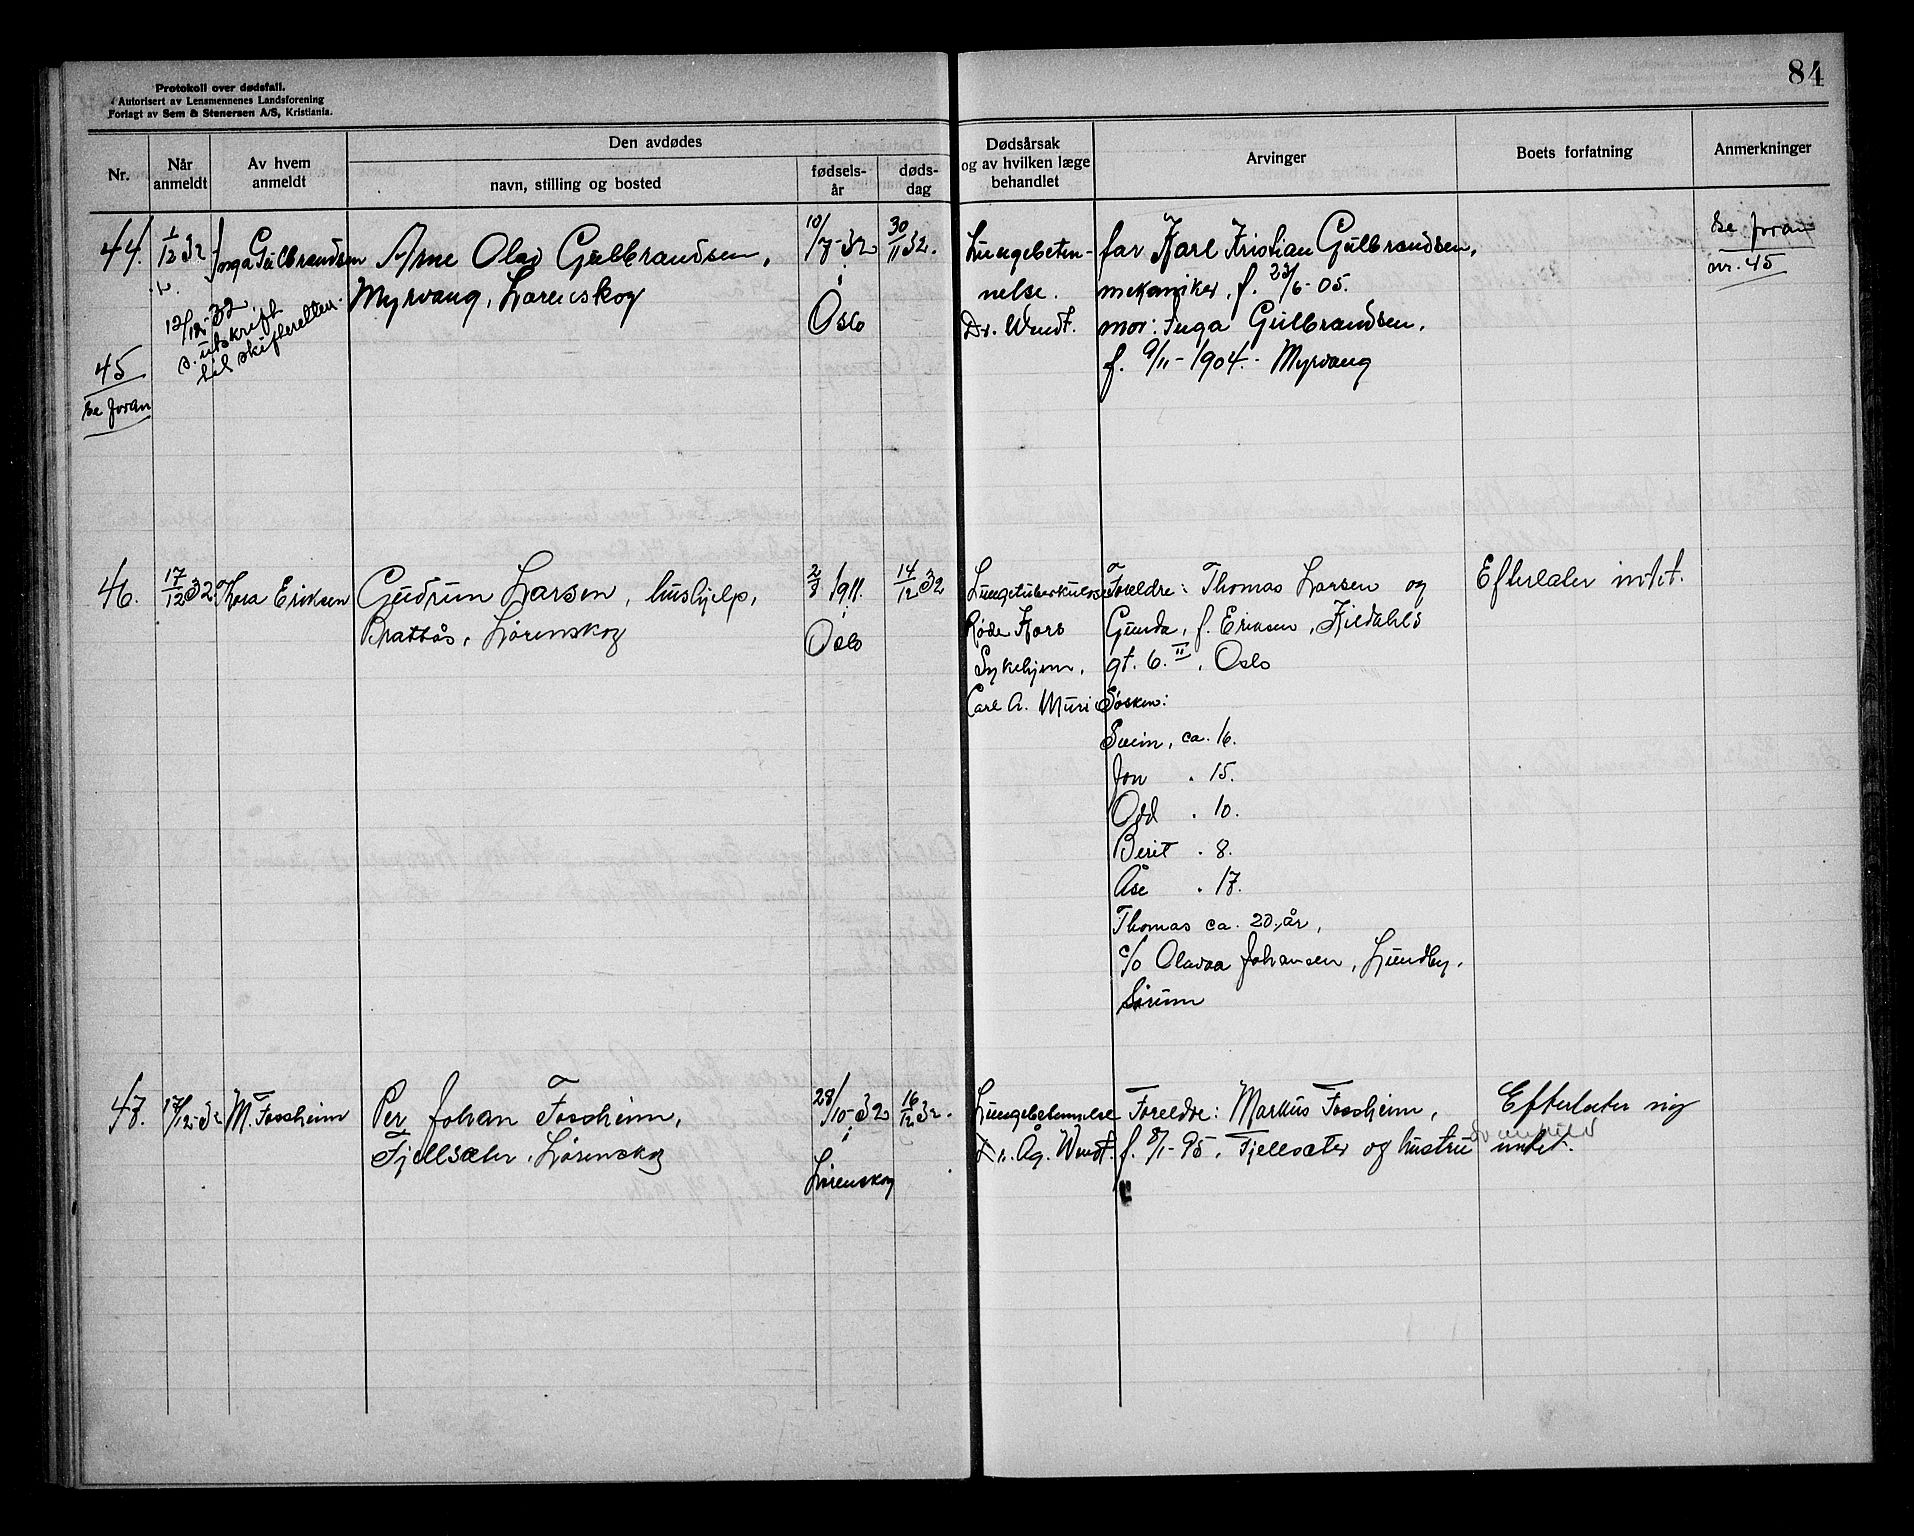 84
Protokoll over dødsfall.
Autorisert av Lensmennenes Landsforening
Forlagt av Sem & Stenersen A/S, Kristiania.
Nr.
Når anmeldt
Av hvem anmeldt
Den avdødes
navn, stilling og bosted
fødselsår
dødsdag
Dødsårsak
og av hvilken læge
behandlet
Arvinger
Boets forfatning
Anmerkninger
44. 1/12 32 Inga Gulbrandsen Arne Olav Gulbrandsen, 10/7-32 30/11 32.
Myrvang, Lørenskog
i
Oslo
12/12-32
s. utskrift
til skifteretten.
45
se foran
Lungebeten-
nelse.
Dr. Wendt.
far Karl Kristian Gulbrandsen,
mekaniker, f. 23/6-05.
mor: Inga Gulbrandsen.
f. 9/11-1904. Myrvang
Se foran
nr. 45
46. 17/12 32. Kara Eriksen Gudrun Larsen, hushjelp, 2/3 1911. 14/12 32
Bratbås, Lørenskog
i
Oslo
Lungetuberkulose
Røde Kors
Sykehjem.
Carl A. Muri
Foreldre: Thomas Larsen og
Gunda, f. Eriksen, Kjeldahls
gt. 6. II, Oslo
Søsken:
Svein, ca. 16.
Jon . 15.
Odd . 10.
Berit . 8.
Åse . 17.
Thomas ca. 20 år,
c/o Olavaa Johansen, Lundby,
Sørum
Efterlater intet.
47. 17/12-32 M. Fossheim Per Johan Fossheim, 28/10-32 16/12 32.
Fjellsæter, Lørenskog
i
Lørenskog
Lungebetennelse
Dr. Åg. Wendt.
Foreldre: Markus Fossheim,
f. 8/1-95, Fjellsæter og hustru
Efterlater sig
intet.